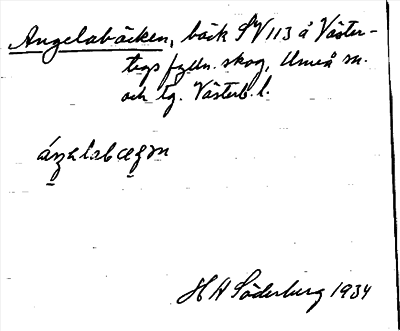 Angelabäcken, bäck SV 113 å Väster-
tegs fylln. skog, Umeå sn.
och tg. Västerb. l.
H A Söderburg 1934